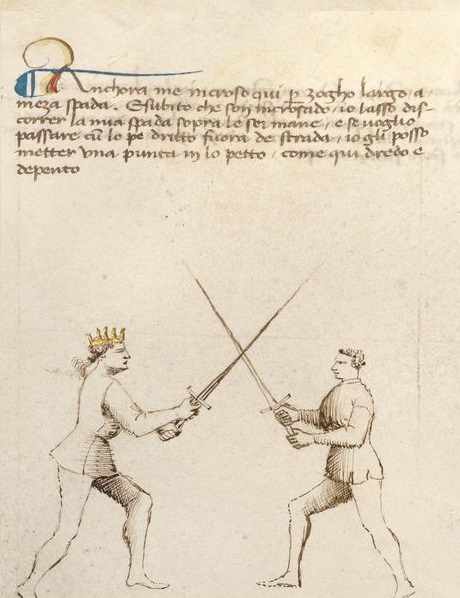 Anchora me incroso qui p zogho largo, a
meza spada. E subito che son incrosado, io lasso dis-
correr la mia spada sopra le soi mane, e se voglio
passare cũ lo pe dritto fuora de strada, io gli posso
metter una punta in lo petto, come qui dredo e
depento